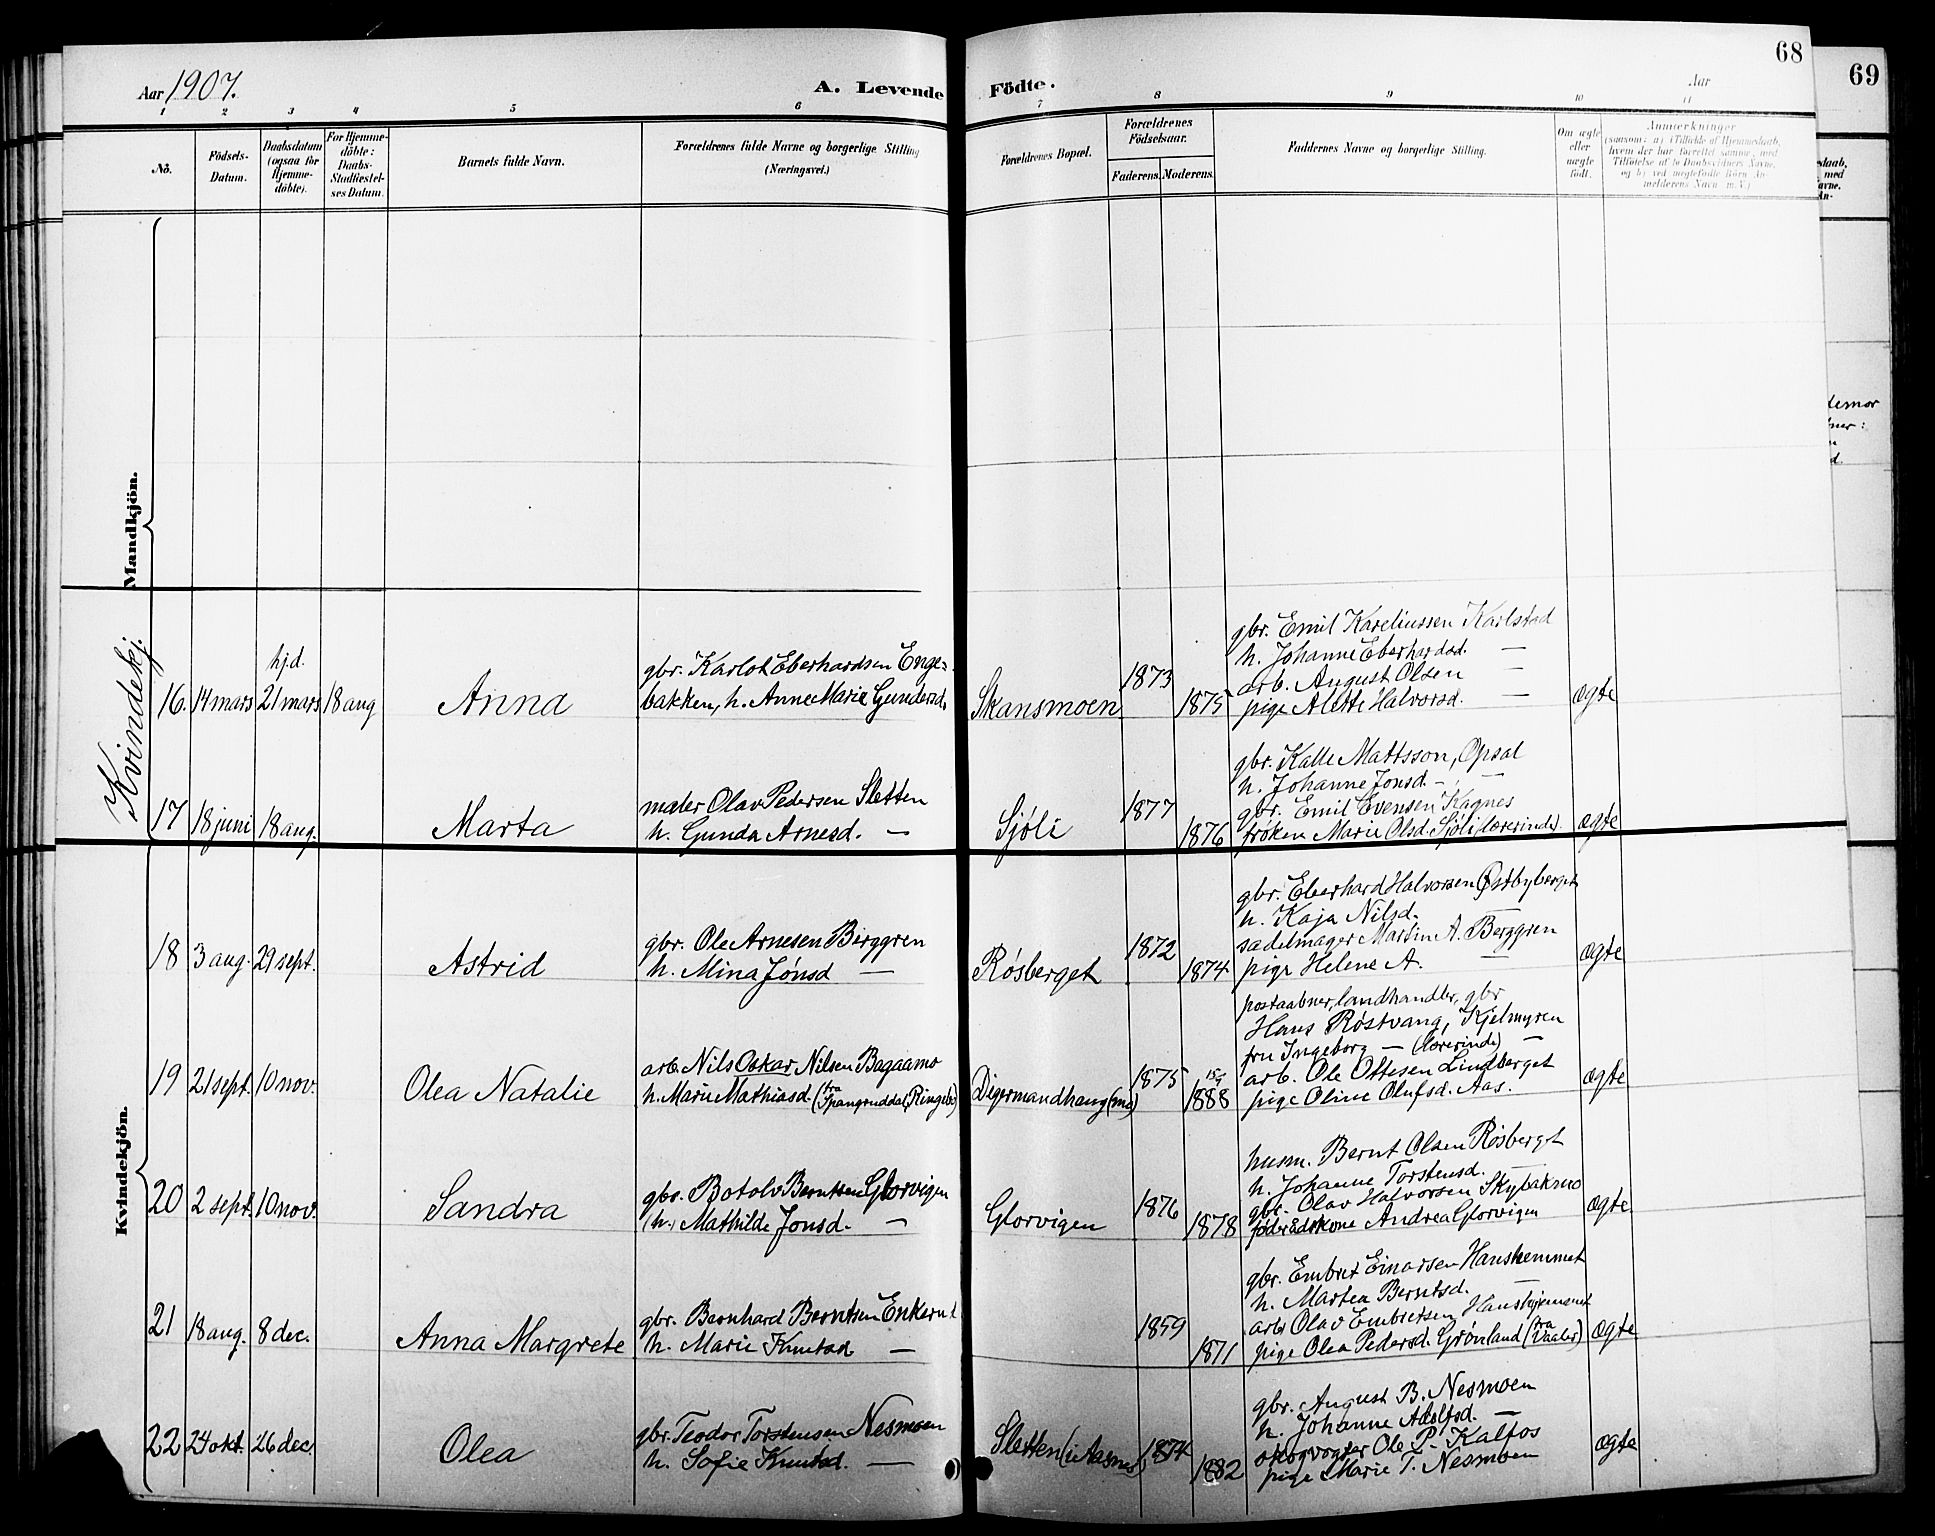 Aar 1907.
A. Levende Födte.
68
Aar
69
1 2 3 4 5 6 7 8 9 10 11
No.
Födsels-
Datum.
Daabsdatum
(ogsaa for
Hjemme-
döbte).
For Hjemme-
döbte:
Daabs-
Stadfæstel-
ses Datum.
Barnets fulde Navn.
Forældrenes fulde Navne og borgerlige Stilling
(Næringsvei.)
Forældrenes Bopæl.
Forældrenes
Födselsaar.
Faderens.
Moderens.
Faddernes Navne og borgerlige Stilling.
Om ægte
eller
uægte
født.
Anmærkninger
(saasom: a) i Tilfælde af Hjemmedaab,
hvem der har forrettet samme, med
Tilföielse af to Daabsvidners Navne,
og b) ved uægtefödte Börn An-
melderens Navn m. V.)
Mandkjön.
Kvindekj.
Kvindekjön.
16. 14 mars
hj.d.
21 mars
18 aug
Anna
gbr. Karlot Eberhardsen Enge-
bakken, h. Anne Marie Gundersd.
Skansmoen
1873
1875
gbr. Emil Kareliussen Karlstad
h. Johanne Eberhardsd. —
arb. August Olsen —
pige Alette Halvorsd. —
ægte
17 18 juni 18 aug.
Marta
maler Olav Pedersen Sletten
h. Gunda Arnesd. —
Sjöli
1877
1876
gbr. Kalle Mattsson, Opsal
h. Johanne Jonsd. — —
gbr. Emil Evensen Kagnes
frøken Marie Olsd. Sjöli (lærerinde).
ægte
18 3 aug. 29 sept.
Astrid
gbr. Ole Arnesen Berggren
h. Mina Jónsd —
Røsberget
1872
1874
gbr. Eberhard Halvorsen Østbyberget
h. Kaja Nilsd. —
sadelmager Martin A. Berggren
pige Helene A. —
ægte
19 21 sept. 10 nov.
Olea Natalie
arb. Nils Oskar Nilsen Bagaamo
h. Marie Mathiasd. (fra Ringebu)
Digermandhaug (mo)
1875
15/9
1888
postaabner, landhandler, gbr
Hans Røstvang, Kjelmyren
fru Ingeborg — (lærerinde) —
arb. Ole Ottesen Lindberget
pige Oline Olufsd. Aas.
ægte
20 2 sept. 10 nov.
Sandra
gbr. Botolv Berntsen Glorvigen
(h.) Mathilde Jonsd. —
Glorvigen
1876
1878
husm. Bernt Olsen Røsberget
h. Johanne Torstensd. —
gbr. Olav Halvorsen Skybakmo
fødrådskone Andrea Glorvigen
ægte
21 18 aug. 8 dec.
Anna Margrete
gbr. Bernhard Berntsen Enkernd
h. Marie Knutsd —
1859
1871
gbr. Embret Einarsen Hanskemmet
h. Martea Berntsd. —
arb. Olav Embretsen Hanskjemmet
pige Olea Pedersd. Grønland (fra Vaaler)
ægte
22 24 okt. 26 dec.
Olea
gbr. Teodor Torstensen Nesmoen
h. Sofie Knutsd. —
Sletten (i Aasnes)
1874
1882
gbr. August B. Nesmoen
h. Johanne Adolfsd. —
skogvogter Ole P. Kalfos
pige Marie T. Nesmoen
ægte